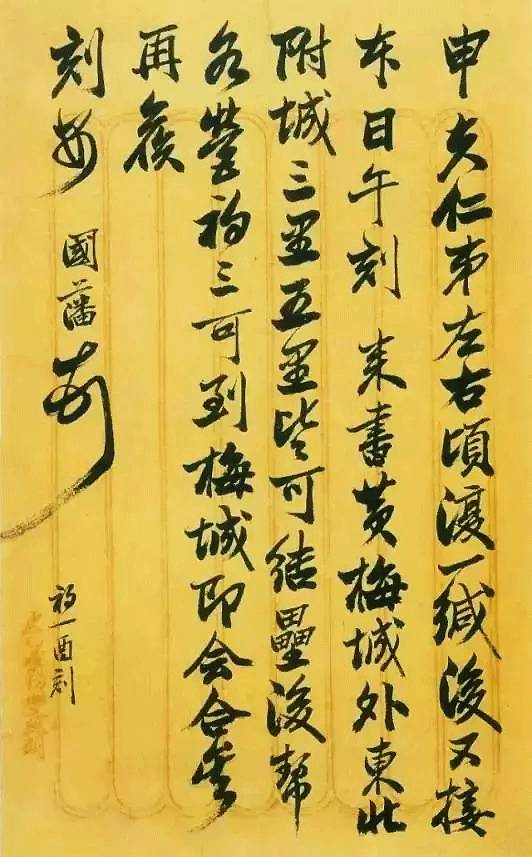 申夫仁弟左右頃復一緘後又接
本日午刻 來書黃梅城外東北
附城三里五里皆可結壘後幫
各營初三可到梅城即会合矣
再候
刻安 國藩
初一酉刻